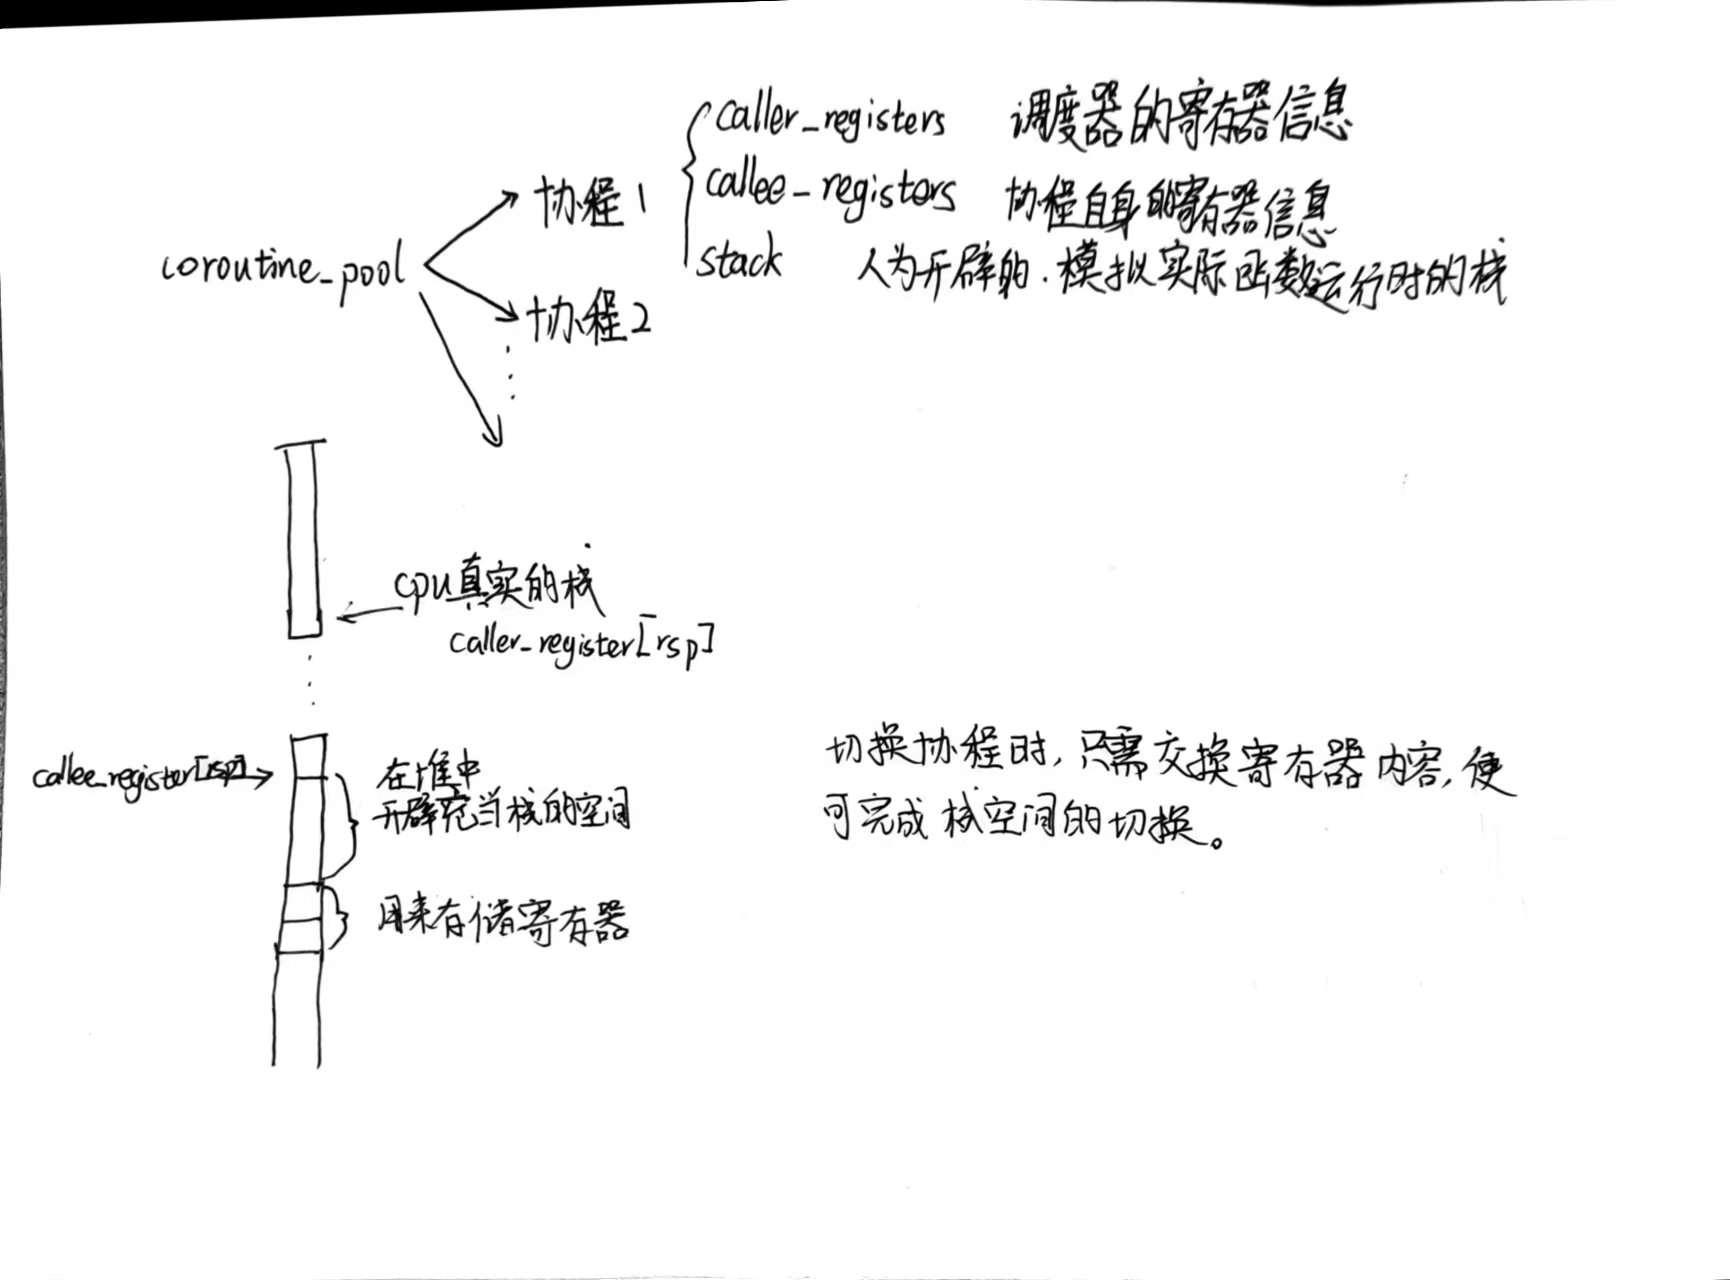 caller_registers 调度器的寄存器信息
协程1 callee_registers 协程自身的寄存器信息
coroutine_pool stack 人为开辟的.模拟实际函数运行时的栈
协程2
cpu真实的栈
caller_register[rsp]
callee_register[rsp] 在堆中
开辟充当栈的空间
用来存储寄存器
切换协程时,只需交换寄存器内容,便
可完成栈空间的切换。